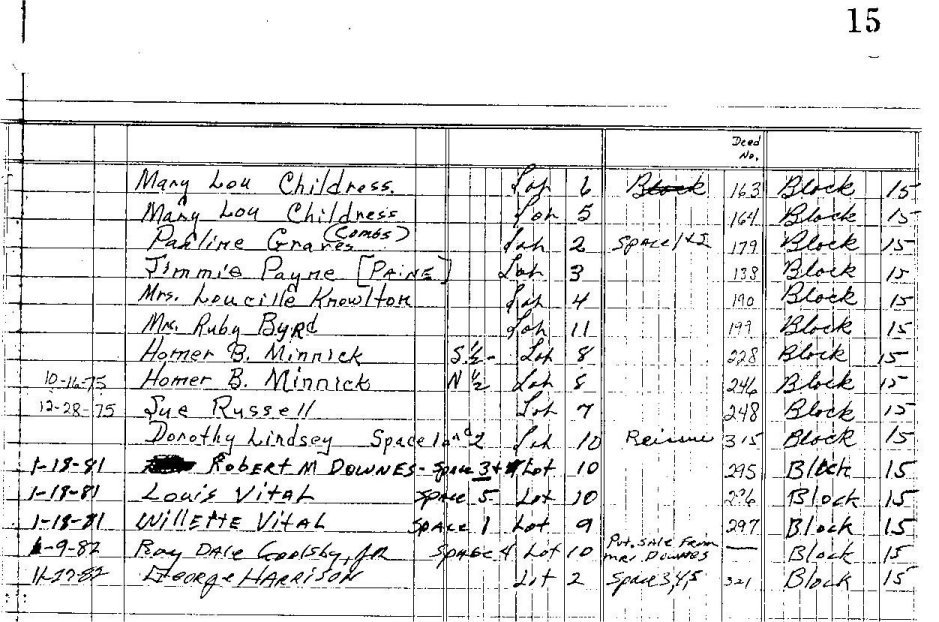 15
Deed No.
Mary Lou Childress. Lot 6 Block 163 Block 15
Mary Lou Childress Lot 5 164 Block 15
(Combs)
Pauline Graves Lot 2 Space 1+2 179 Block 15
Jimmie Payne [PAINE] Lot 3 138 Block 15
Mrs. Loucille Knowlton Lot 4 190 Block 15
Mrs. Ruby Byrd Lot 11 199 Block 15
Homer B. Minnick S. 1/2 - Lot 8 228 Block 15
10-16-75 Homer B. Minnick N 1/2 Lot 8 246 Block 15
12-28-75 Sue Russell Lot 7 248 Block 15
Dorothy Lindsey Space 1 and 2 Lot 10 Reissue 315 Block 15
1-18-81 ROBERT M DOWNES - Space 3+4 Lot 10 295 Block 15
1-18-81 LOUIS VITAL Space 5 Lot 10 296 Block 15
1-18-81 WILLETTE VITAL Space 1 Lot 9 297 Block 15
6-9-82 Ray DALE Goolsby, JR Space 4 Lot 10 Pvt. Sale From Mrs. Downes — Block 15
11-27-82 GEORGE HARRISON Lot 2 Space 3,4,5 321 Block 15